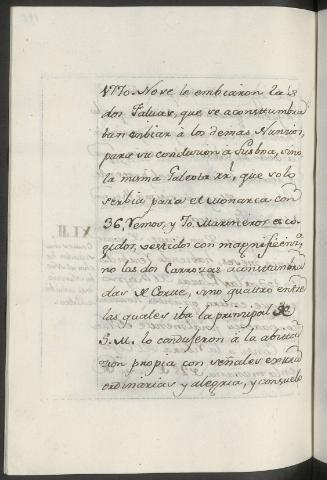 1770. No se le embiaron las
dos Faluas, que se acostumbra
ban embiar á los demas Nuncios,
para su conducion a Lisboa, sino
la misma Galeota Rl, que solo
serbia para el Monarca con
36, Remos, y 70. Marineros esco
gidos, vestidos con magnificencia
no las dos Carrozas acostumbra
das de Corte, sino quatro entre
las quales iba la principal de
S. M. lo condujeron á la abita
cion propia con señales extra
ordinarias y alegria, y consuelo
XLII